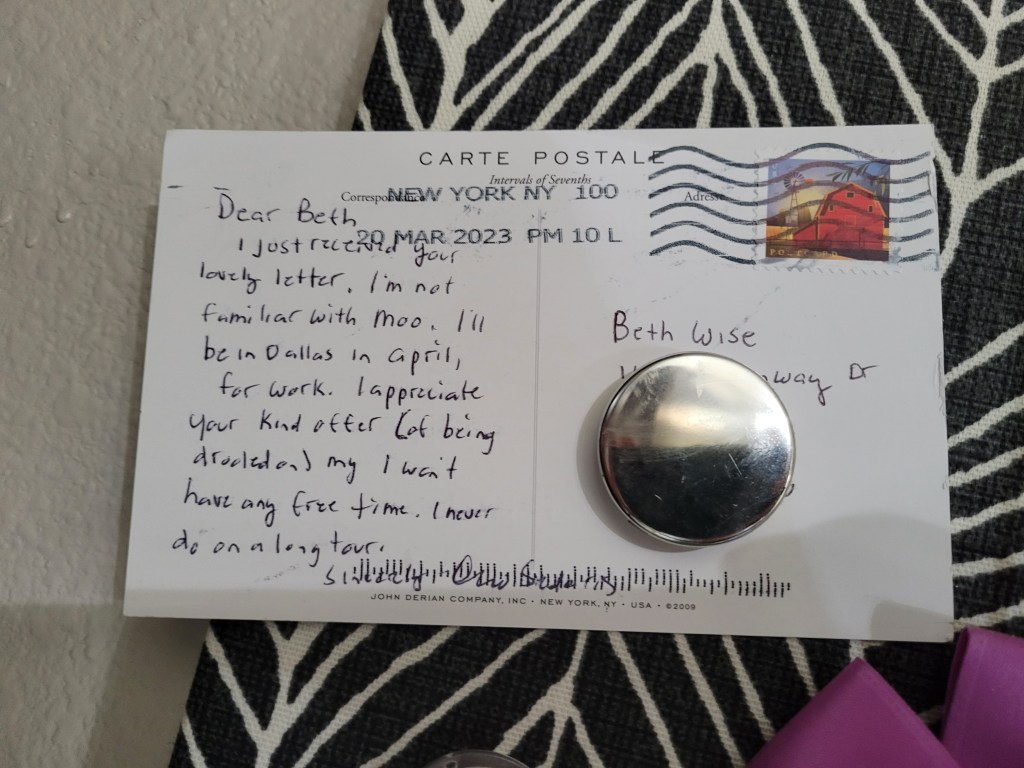 CARTE POSTALE
Intervals of Sevenths
Correspondance
Adresse
NEW YORK NY 100
20 MAR 2023 PM 10 L
Dear Beth
I just received your
lovely letter. I'm not
familiar with Moo. I'll
be in Dallas in april,
for work. I appreciate
your kind offer (of being
drooled on) my I won't
have any free time. I never
do on a long tour.
Sincerely, David
Beth Wise
way Dr
JOHN DERIAN COMPANY, INC • NEW YORK, NY • USA • ©2009